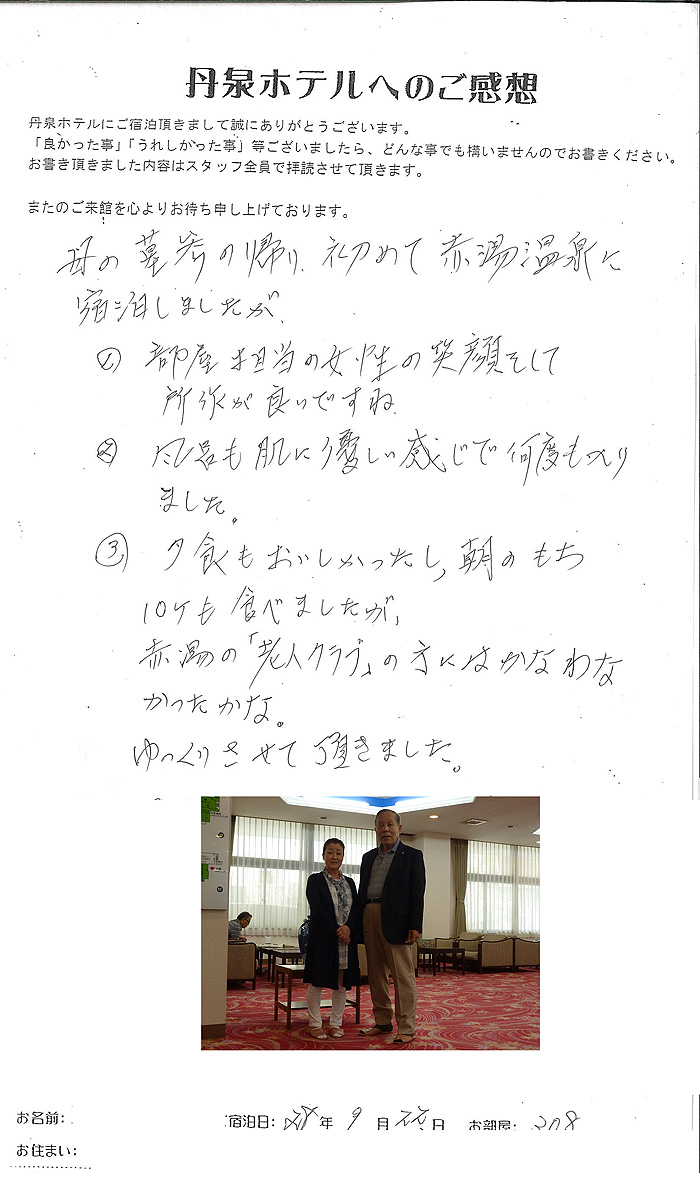 丹泉ホテルへのご感想
丹泉ホテルにご宿泊頂きまして誠にありがとうございます。
「良かった事」「うれしかった事」等ございましたら、どんな事でも構いませんのでお書きください。
お書き頂きました内容はスタッフ全員で拝読させて頂きます。
またのご来館を心よりお待ち申し上げております。
母の墓参の帰り、初めて赤湯温泉に
宿泊しましたが、
① 部屋担当の女性の笑顔そして
所作が良いですね
② 風呂も肌に優しい感じで何度も入り
ました。
③ 夕食もおいしかったし、朝のもち
10ケも食べましたが、
赤湯の「老人クラブ」の方にはかなわな
かったかな。
ゆっくりさせて頂きました。
お名前:
宿泊日: 年 9 月 日 お部屋: 208
お住まい: